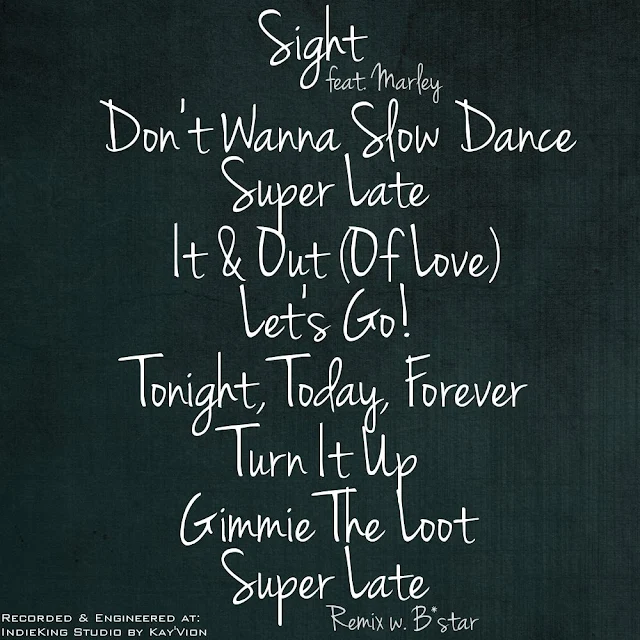 Sight
feat. Marley
Don't Wanna Slow Dance
Super Late
It & Out (Of Love)
Let's Go!
Tonight, Today, Forever
Turn It Up
Gimmie The Loot
Super Late
Remix w. B*star
Recorded & Engineered at:
IndieKing Studio by Kay'Vion